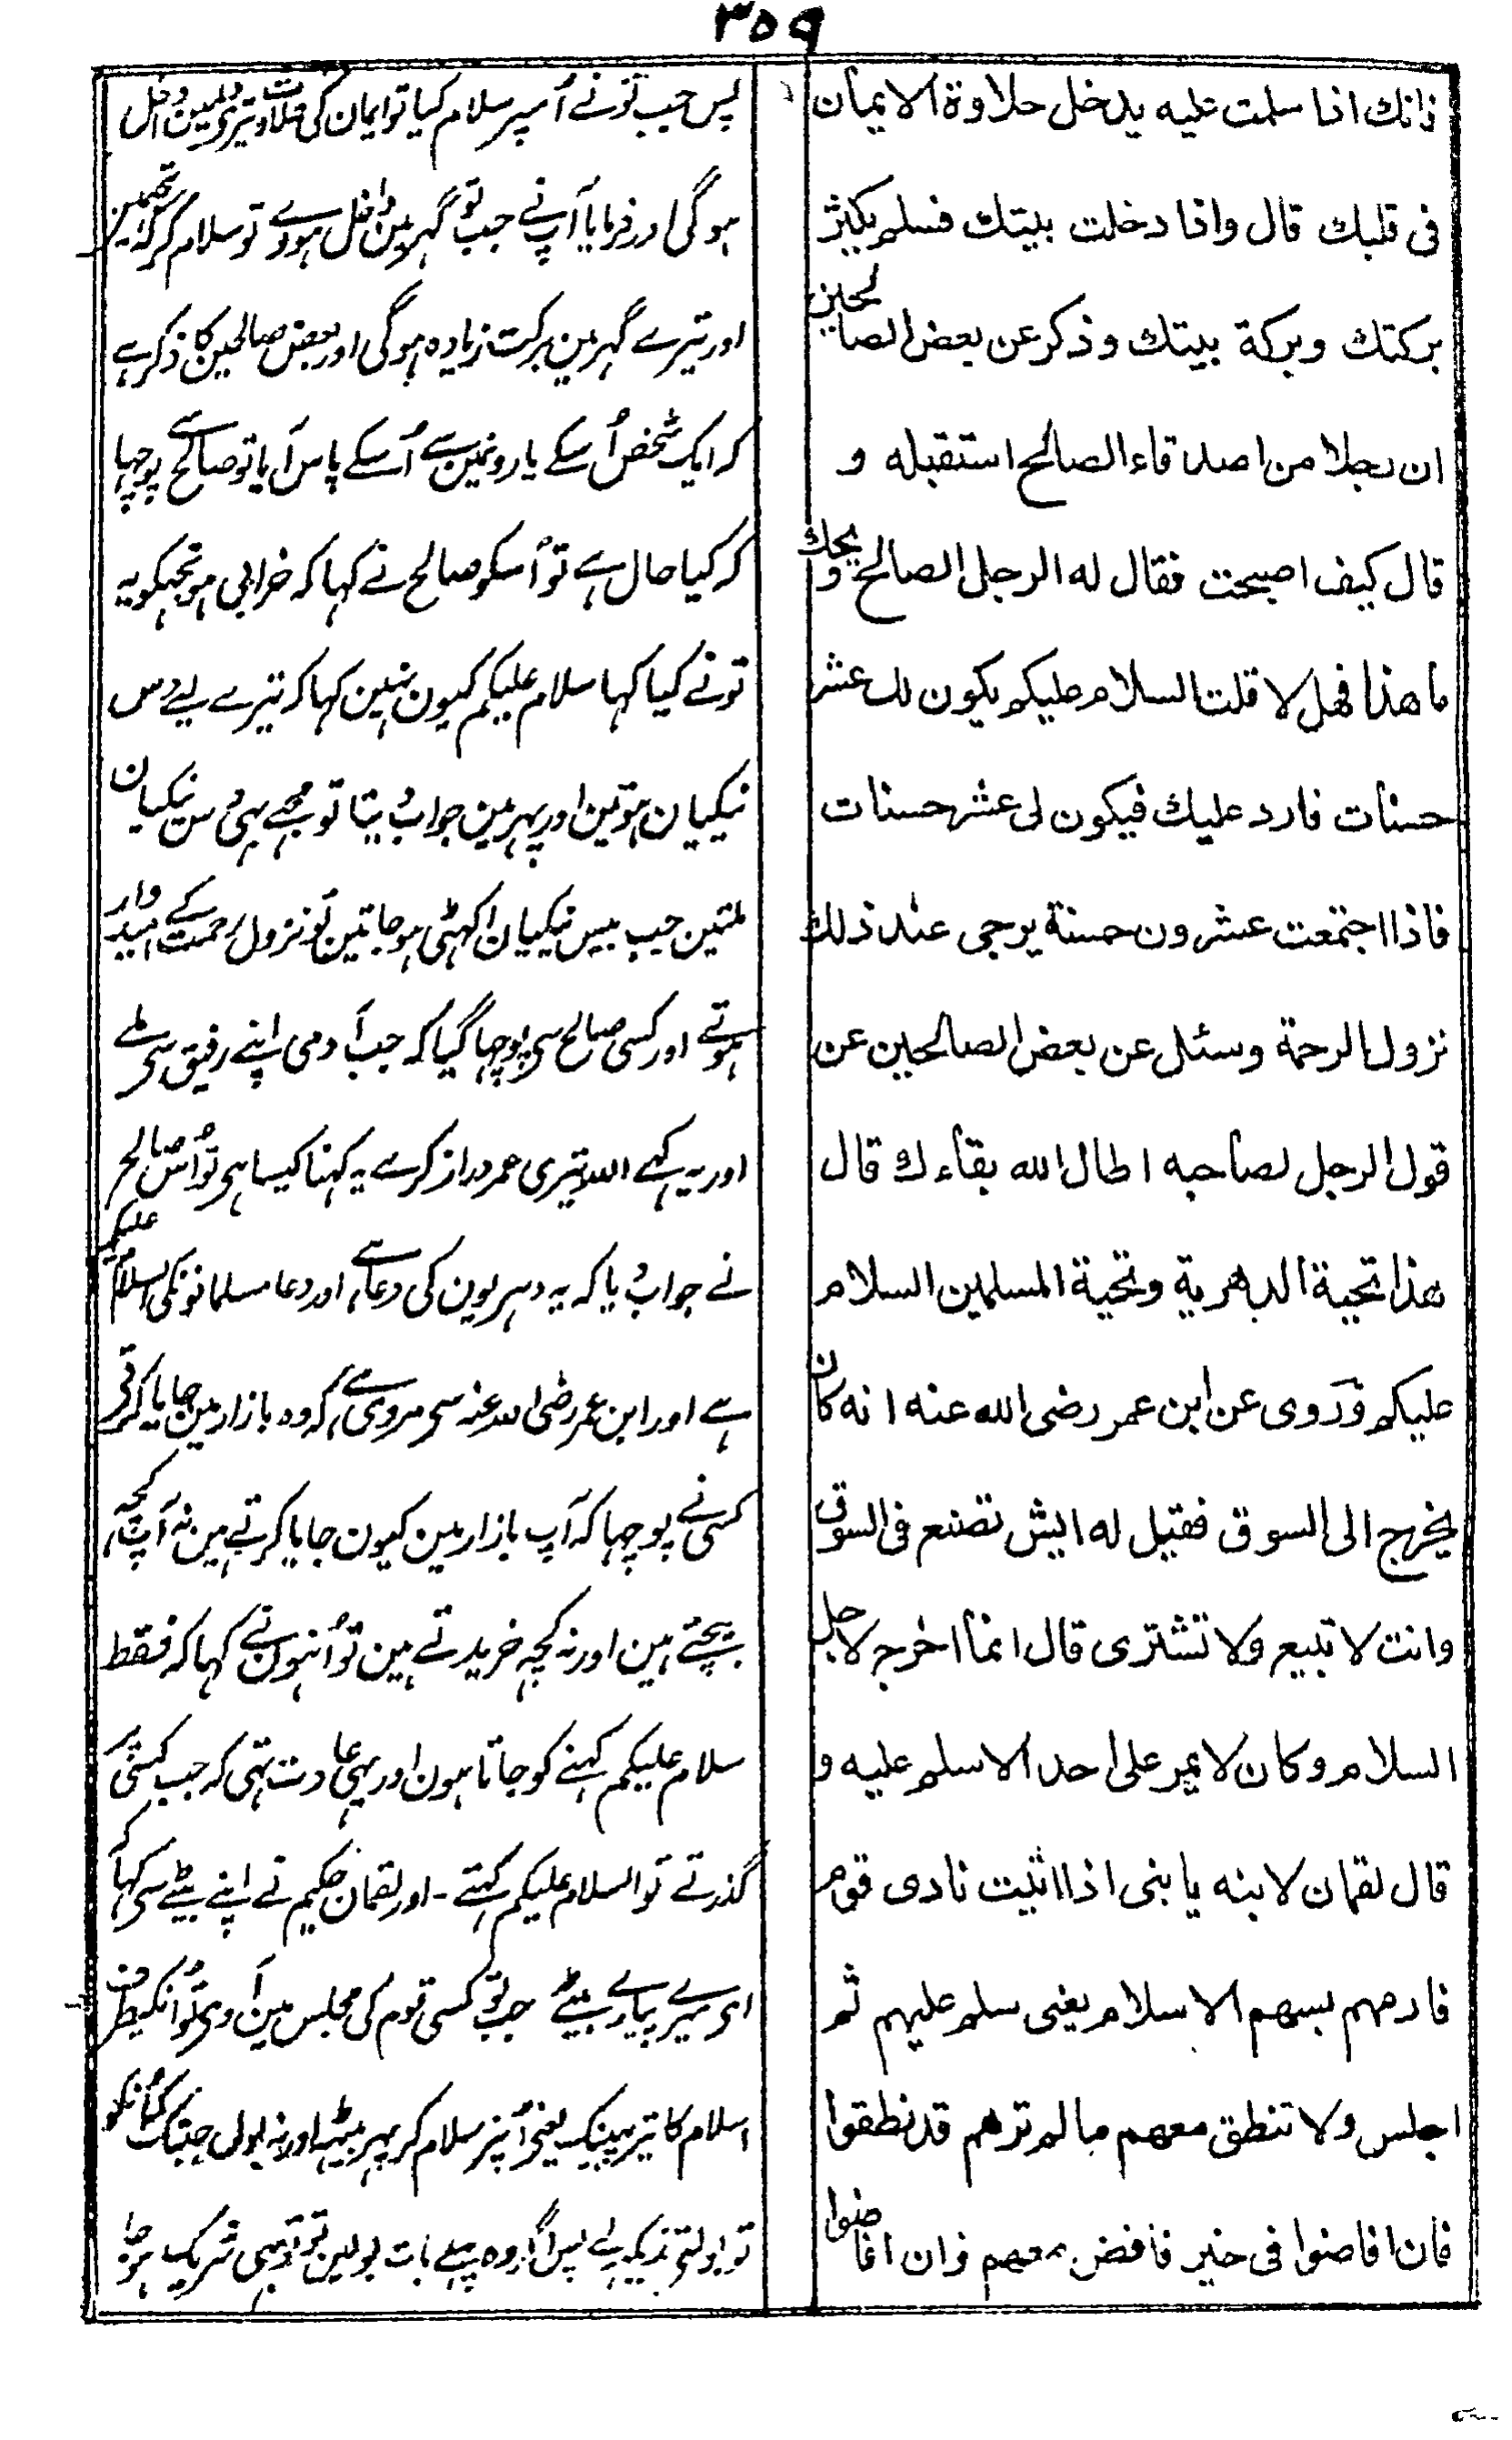 ۳۵۹
فانك اذا سلمت عليه يدخل حلاوة الايمان
فى قلبك قال واذا دخلت بيتك فسلم يكثر
بركتك وبركة بيتك وذكر عن بعض الصالحين
ان رجلا من اصدقاء الصالح استقبله و
قال كيف اصبحت فقال له الرجل الصالح ويحك
ما هذا فهل لا قلت السلام عليكم يكون لك عشر
حسنات فارد عليك فيكون لى عشر حسنات
فاذا اجتمعت عشرون حسنة يرجى عند ذلك
نزول الرحمة وسئل عن بعض الصالحين عن
قول الرجل لصاحبه اطال الله بقاءك قال
هذا تحية الدهرية وتحية المسلمين السلام
عليكم وروى عن ابن عمر رضى الله عنه انه كان
يخرج الى السوق فقيل له ايش تصنع فى السوق
وانت لا تبيع ولا تشترى قال انما اخرج لاجل
السلام وكان لا يمر على احد الا سلم عليه و
قال لقمان لابنه يا بنى اذا اتيت نادى قوم
فارمهم بسهم الاسلام يعنى سلم عليهم ثم
اجلس ولا تنطق معهم مالم ترهم قد نطقوا
فان افاضوا فى خير فافض معهم وان افاضوا
پس جب تونے اُسپر سلام کیا تو ایمان کی حلاوت تیری دلمین داخل
ہوگی اور فرمایا آپنے جب تو گہر مین داخل ہووے تو سلام کر کہ تجہمین
اور تیرے گہر مین برکت زیادہ ہوگی اور بعض صالحین کا ذکر ہے
کہ ایک شخص اُسکے یارونمین سے اُسکے پاس آیا تو صالح سے پوچہا
کہ کیا حال ہے تو اُسکو صالح نے کہا کہ خرابی ہو تجہکو یہ
تونے کیا کہا سلام علیکم کیون نہین کہا کہ تیرے لیے دس
نیکیان ہوتین اور پہر مین جواب دیتا تو مجہے بہی دس نیکیان
ملتین جب بیس نیکیان اکہٹی ہو جاتین تو نزول رحمت کے امیدوار
ہوتے اور کسی صالح سی پوچہا گیا کہ جب آدمی اپنے رفیق سی ملے
اور یہ کہے اللہ تیری عمر دراز کرے یہ کہنا کیسا ہی تو اُس صالح
نے جواب دیا کہ یہ دہریون کی دعا ہے اور دعا مسلمانونکی السلام علیکم
ہے اور ابن عمر رضی اللہ عنہ سی مروی ہے کہ وہ بازار مین جایا کرتی
کسی نے پوچہا کہ آپ بازار مین کیون جایا کرتے ہین نہ آپ کچہ
بیچتے ہین اور نہ کچہ خریدتے ہین تو اُنہون نے کہا کہ فقط
سلام علیکم کہنے کو جاتا ہون اور یہی عادت تہی کہ جب کسی پر
گذرتے تو السلام علیکم کہتے ۔ اور لقمان حکیم نے اپنے بیٹے سی کہا کہ
ای میرے پیارے بیٹے جب تو کسی قوم کی مجلس مین آوی تو اُنکیطرف
اسلام کا تیر پہینک یعنی اُنپر سلام کر پہر بیٹہ اور نہ بول جبتک کہ اُنکو
تو بولتے ندیکہ لے پس اگر وہ پہلے بات بولین تو تو بہی شریک ہو جا